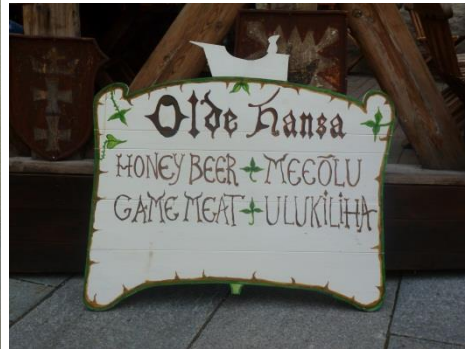 Olde Hansa
HONEY BEER MEEÕLU
GAME MEAT ULUKILIHA